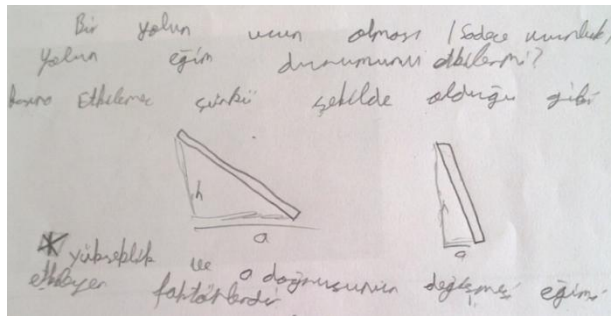 Bir yolun uzun olması (Sadece uzunluk)
yolun eğim durumunu etkilermi?
Etkilemez çünkü şekilde olduğu gibi
h
a
a
yükseklik ve a doğrusunun değişmesi eğimi
etkleyen faktörlerdir